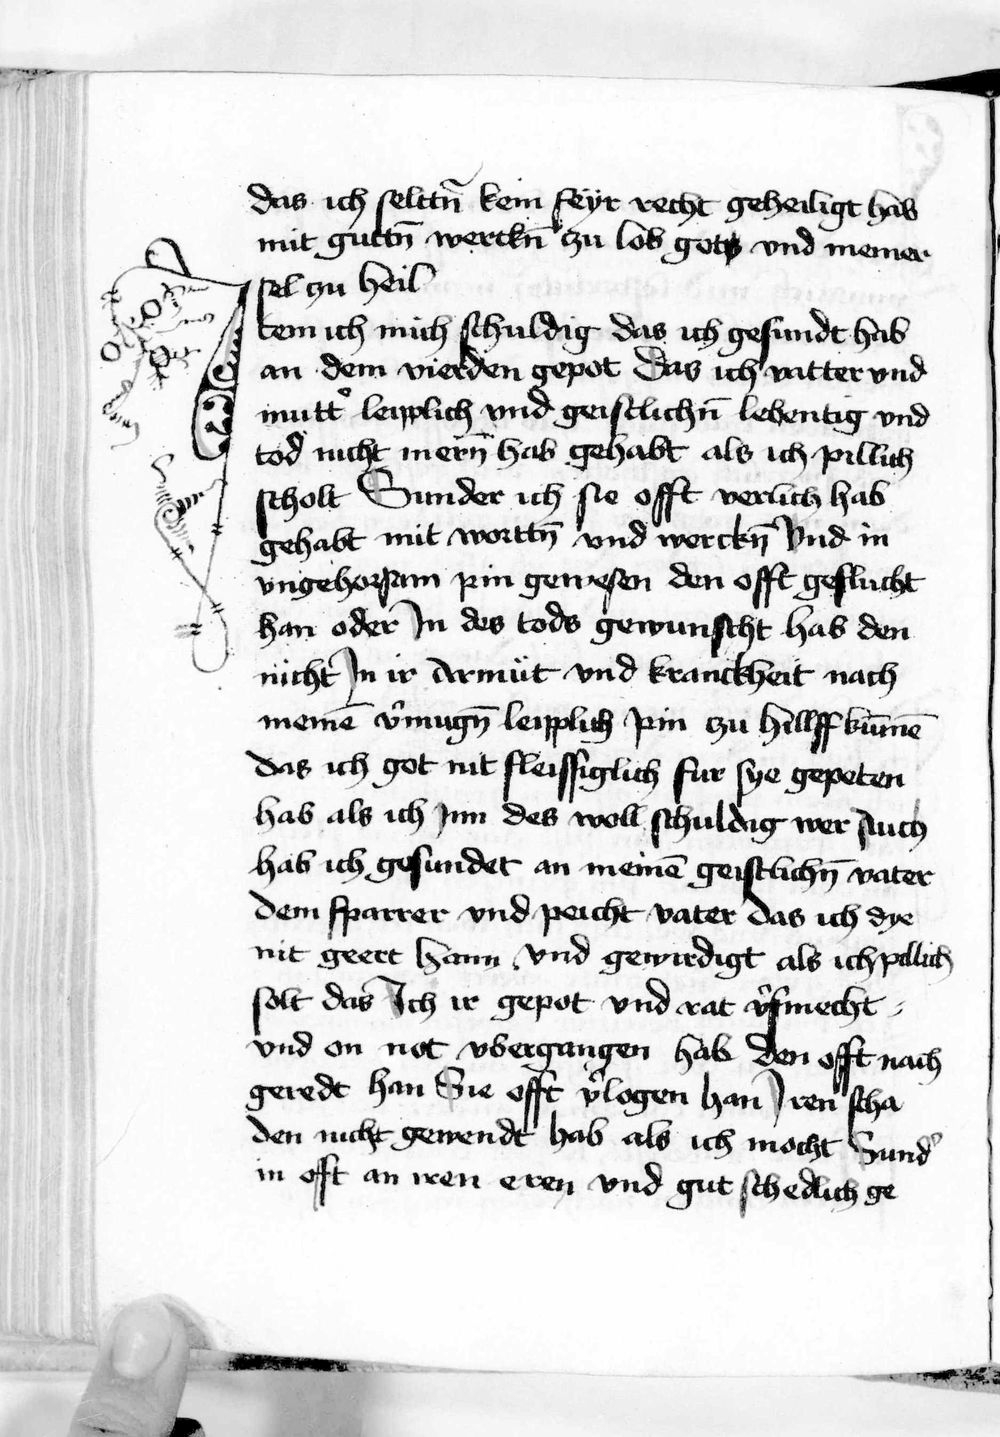 das ich selttn̄ kein feyr recht geheiligt hab
mit guttn̄ werckn̄ zu lob gots vnd meiner
sel zu heil
Item ich mich schuldig das ich gesundt hab
an dem vierden gepot Das ich vatter vnd
mutt᷑ leiplich vnd geistlichn̄ lebentig vnd
tod nicht in ern̄ hab gehabt als ich pillich
scholt Sunder ich sie offt verlich hab
gehabt mit worttn̄ vnd werckn̄ Vnd in
vngehorsam pin gewesen den offt geflucht
han oder In des tods gewunscht hab den
nicht In ir Armüt vnd kranckheit nach
meinē v᷑mugn̄ leiplich pin zu hillff kūmē
das ich got nit fleissiglich fur sye gepeten
hab als ich Inn des woll schuldig wer Auch
hab ich gesundet an meinē geistlichn̄ vater
dem pfarrer vnd peicht vater das ich dye
nit geert hann vnd gewirdigt als ich pillich
solt das Ich ir gepot vnd rat v᷑smecht
vnd on not vbergangen hab Den offt nach
geredt han Sie offt v᷑logen han Iren scha
den nicht gewendt hab als ich mocht Sund᷑
in oft an iren eren vnd gut schedlich ge